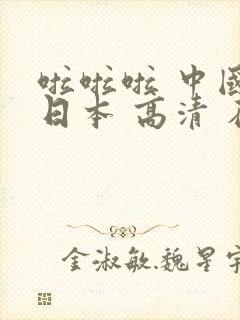 啦啦啦 中國
日本 高清
金淑敏.魏星宇